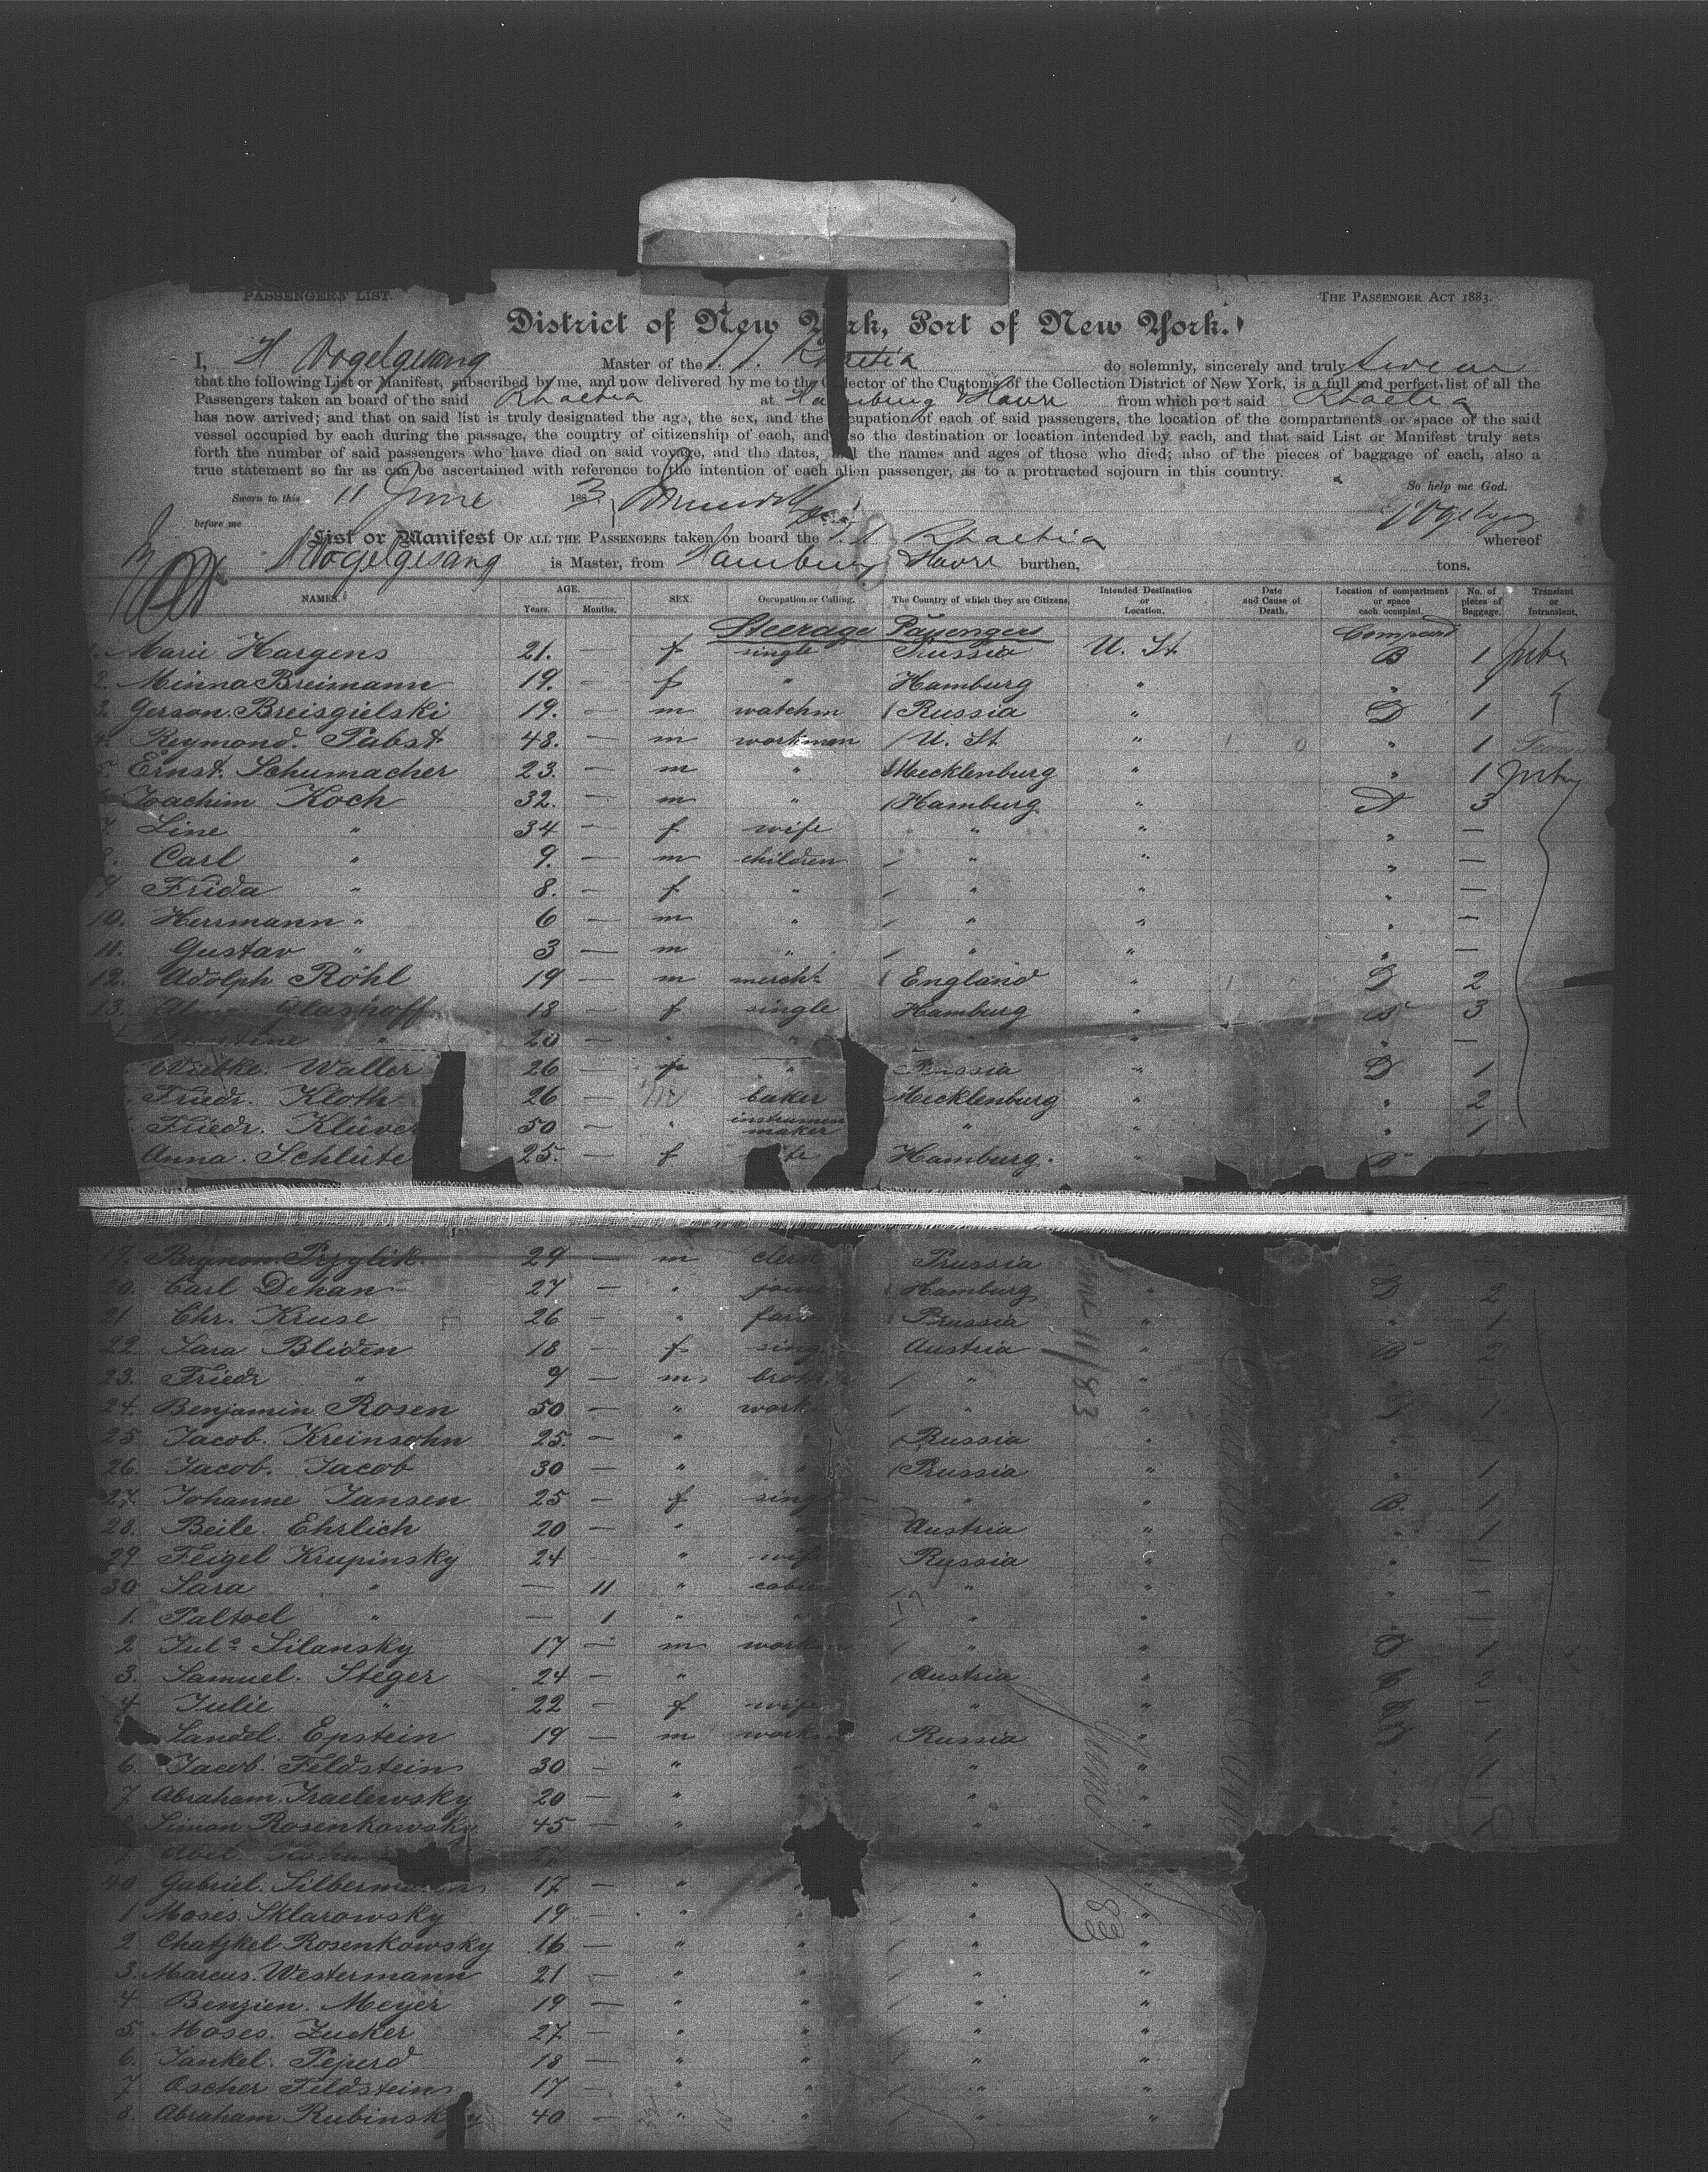 PASSENGERS LIST. THE PASSENGER ACT 1883.
District of New York, Port of New York.
I, H Vogelgesang Master of the S. S. Rhaetia do solemnly, sincerely and truly swear
that the following List or Manifest, subscribed by me, and now delivered by me to the Collector of the Customs of the Collection District of New York, is a full and perfect list of all the
Passengers taken on board of the said Rhaetia at Hamburg Havre from which port said Rhaetia
has now arrived; and that on said list is truly designated the age, the sex, and the occupation of each of said passengers, the location of the compartments or space of the said
vessel occupied by each during the passage, the country of citizenship of each, and also the destination or location intended by each, and that said List or Manifest truly sets
forth the number of said passengers who have died on said voyage, and the dates, and the names and ages of those who died; also of the pieces of baggage of each, also a
true statement so far as can be ascertained with reference to the intention of each alien passenger, as to a protracted sojourn in this country.
Sworn to this 11 June 1883 So help me God.
before me
List or Manifest OF ALL THE PASSENGERS taken on board the S. S. Rhaetia whereof
H Vogelgesang is Master, from Hamburg Havre burthen, tons.
NAMES. AGE. Years. Months. SEX. Occupation or Calling. The Country of which they are Citizens. Intended Destination or Location. Date and Cause of Death. Location of compartment or space each occupied. No. of pieces of Baggage. Transient or Intransient.
Steerage Passengers
1. Marie Hargens 21. — f single Prussia U. St B 1
2. Minna Breimann 19. — f " Hamburg " " 1
3. Gerson Breisgielski 19. — m watchm Russia " D 1
4. Reymond. Pabst 48. — m workman U. St " " 1
5. Ernst. Schumacher 23. — m " Mecklenburg " " 1
6. Joachim Koch 32. — m " Hamburg " A 3
7. Line " 34 — f wife " " " —
8. Carl " 9. — m children " " " —
9. Frida " 8. — f " " " " —
10. Herrmann " 6 — m " " " " —
11. Gustav " 3 — m " " " " —
12. Adolph Röhl 19 — m mercht England " D 2
13. Glashoff 18 — f single Hamburg " B 3
" 20 — " " " " —
Wiebke. Waller 26 — f " Prussia " D 1
Friedr. Kloth 26 — m baker Mecklenburg " " 2
Friedr. Klüver 50 — " instrumen maker " " " 1
Anna. Schlüte 25. — f Hamburg. " B
19. Przylik 29 — m clerk Prussia —
20. Carl Dehan 27 — " Hamburg " D 2
21 Chr. Kruse 26 — " Prussia " " 1
22. Sara Bliden 18 — f sing Austria " B 2
23. Friedr " 9 — m " " " —
24. Benjamin Rosen 50 — " work " " D 1
25 Jacob. Kreinsohn 25. — " " Russia " " —
26. Jacob. Jacob 30 — " " Prussia " " 1
27. Johanne Jansen 25 — f sing " " B. 1
28. Beile. Ehrlich 20 — " " Austria " " 1
29 Feigel Krupinsky 24 — " wife Russia " " —
30 Sara " — 11 " " " " —
1. " — 1 " " " " —
2 Juls Silansky 17 — m work " " D 1
3. Samuel. Steger 24 — " Austria " 2
4 Julie " 22 — f wife " " —
Sandel. Epstein 19 — m work Russia " D 1
6. Jacob. Feldstein 30 — " " " " 1
7 Abraham. Israelewsky 20 — " " " "
8 Simon Rosenkowsky 45 — " " "
9 Abel. 27
40 Gabriel. Silbermann 17 — " " " "
1 Moses. Sklarowsky 19 — " " " "
2 Chatzkel Rosenkowsky 16 — " " " "
3. Marcus. Westermann 21 — " " " "
4 Benzien. Meyer 19 — " " " "
5. Moses. Zucker 27 — " " " "
6. Jankel. Pejserd 18 — " " " "
7 Oscher Feldstein 17 — " " " "
8. Abraham Rubinsky 40 — " " "
June 11/83